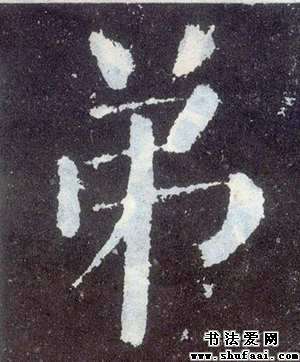 弟
书法爱网
www.shufaai.com